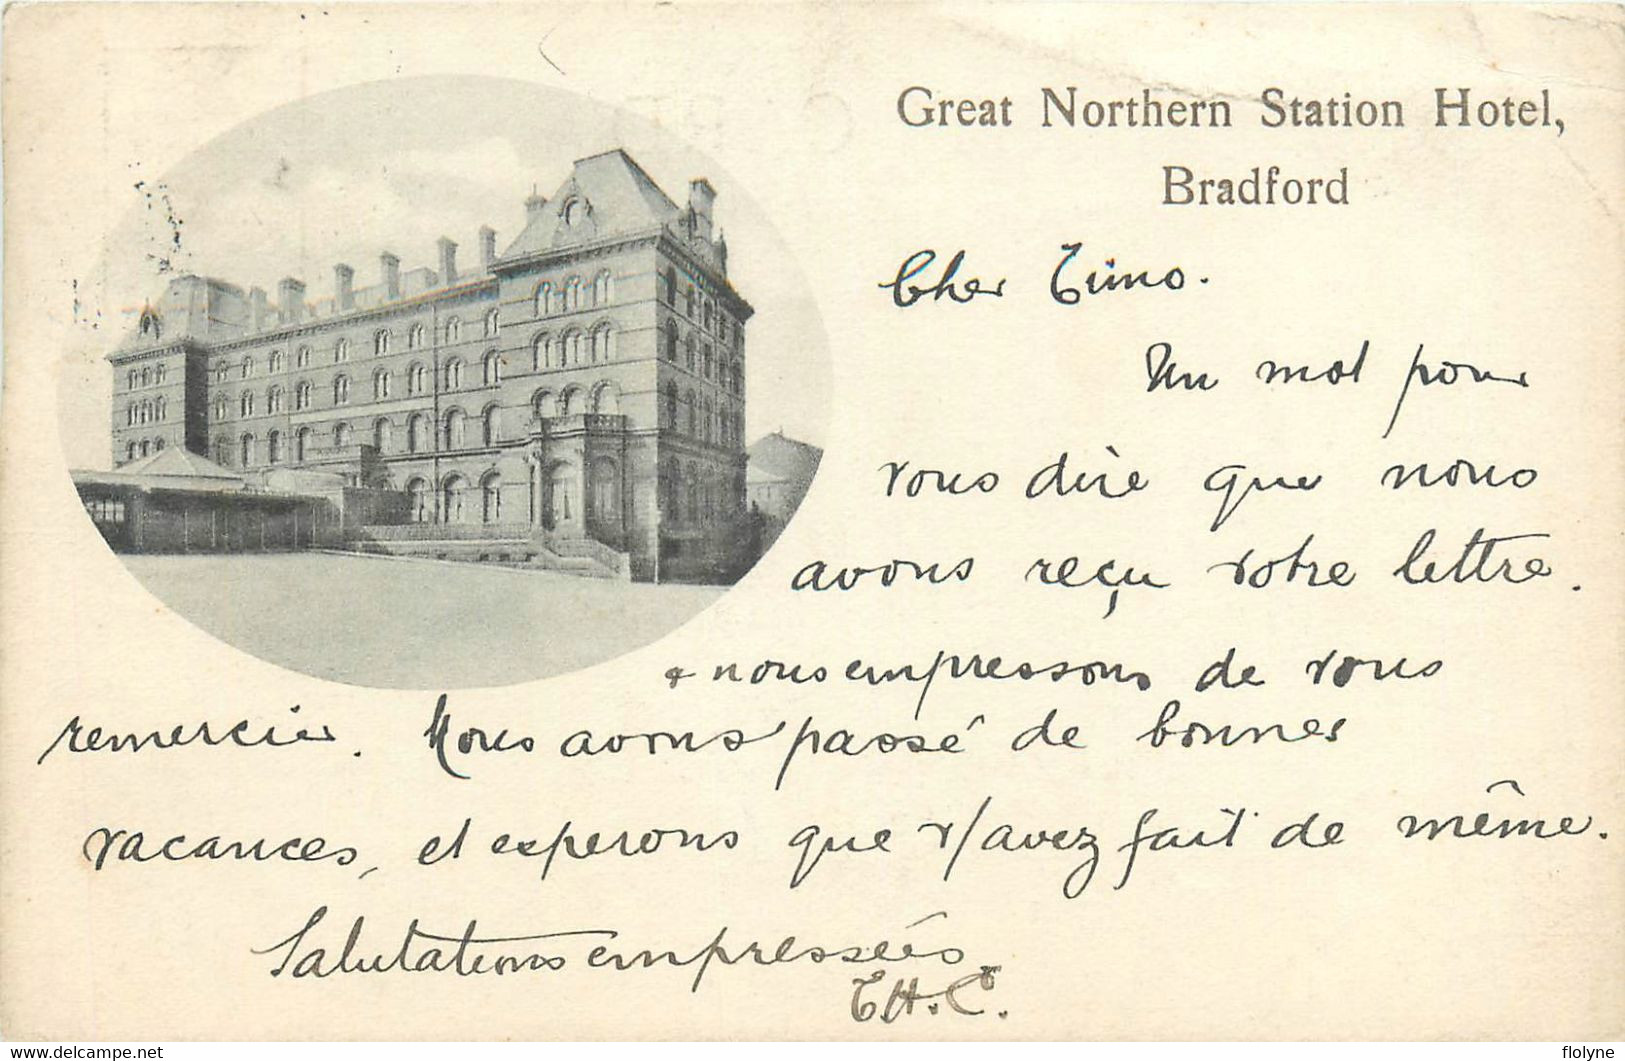 Great Northern Station Hotel,
Bradford
Cher Timo.
Un mot pour
vous dire que nous
avons reçu votre lettre.
& nous empressons de vous
remercier. Nous avons passé de bonnes
vacances, et esperons que v/avez fait de même.
Salutations empressées
T.H.C.
delcampe.net
flolyne